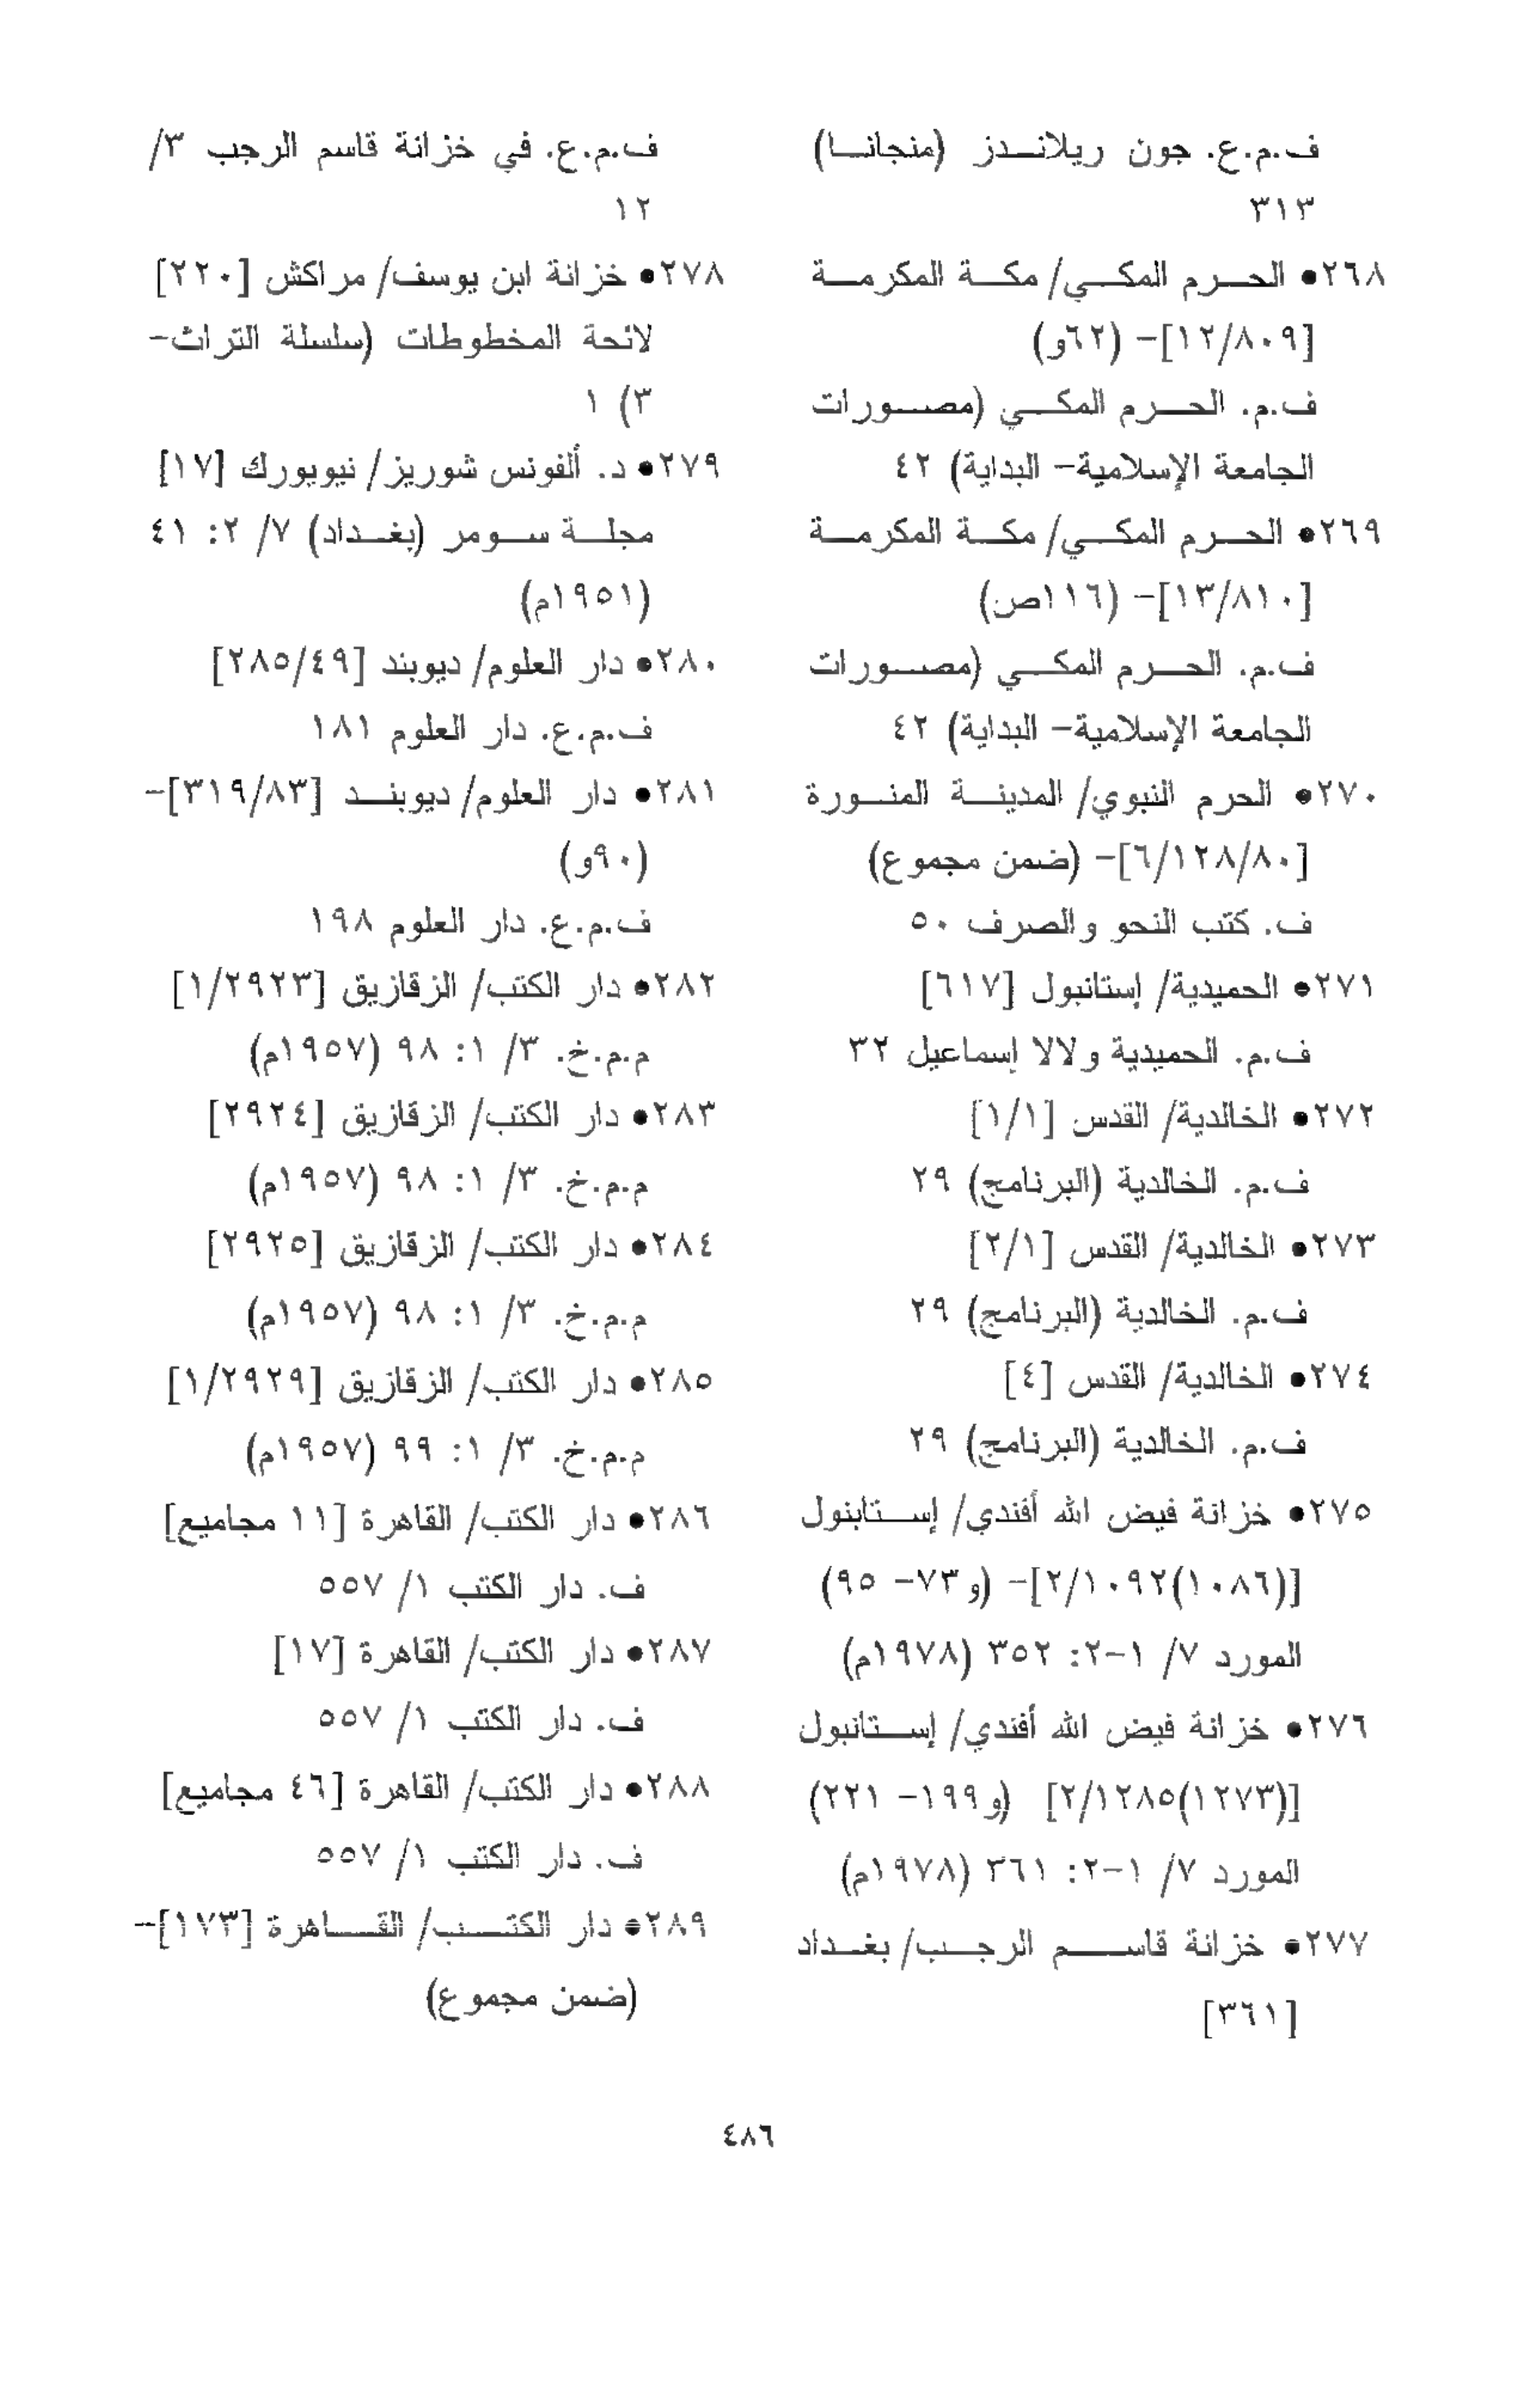 ف.م.ع. جون ريلاندز (منجانا)
٣١٣
٢٦٨• الحرم المكي/ مكة المكرمة
[١٢/٨٠٩]- (٦٢و)
ف.م. الحرم المكي (مصورات
الجامعة الإسلامية- البداية) ٤٢
٢٦٩• الحرم المكي/ مكة المكرمة
[١٣/٨١٠]- (١١٦ص)
ف.م. الحرم المكي (مصورات
الجامعة الإسلامية- البداية) ٤٢
٢٧٠• الحرم النبوي/ المدينة المنورة
[٦/١٢٨/٨٠]- (ضمن مجموع)
ف. كتب النحو والصرف ٥٠
٢٧١• الحميدية/ إستانبول [٦١٧]
ف.م. الحميدية ولالا إسماعيل ٣٢
٢٧٢• الخالدية/ القدس [١/١]
ف.م. الخالدية (البرنامج) ٢٩
٢٧٣• الخالدية/ القدس [٢/١]
ف.م. الخالدية (البرنامج) ٢٩
٢٧٤• الخالدية/ القدس [٤]
ف.م. الخالدية (البرنامج) ٢٩
٢٧٥• خزانة فيض الله أفندي/ إستابنول
[(١٠٨٦)٢/١٠٩٢]- (و٧٣- ٩٥)
المورد ٧/ ١-٢: ٣٥٢ (١٩٧٨م)
٢٧٦• خزانة فيض الله أفندي/ إستانبول
[(١٢٧٣)٢/١٢٨٥] (و١٩٩- ٢٢١)
المورد ٧/ ١-٢: ٣٦١ (١٩٧٨م)
٢٧٧• خزانة قاسم الرجب/ بغداد
[٣٦١]
ف.م.ع. في خزانة قاسم الرجب ٣/
١٢
٢٧٨• خزانة ابن يوسف/ مراكش [٢٢٠]
لائحة المخطوطات (سلسلة التراث-
٣) ١
٢٧٩• د. ألفونس شوريز/ نيويورك [١٧]
مجلة سومر (بغداد) ٧/ ٢: ٤١
(١٩٥١م)
٢٨٠• دار العلوم/ ديوبند [٢٨٥/٤٩]
ف.م.ع. دار العلوم ١٨١
٢٨١• دار العلوم/ ديوبند [٣١٩/٨٣]-
(٩٠و)
ف.م.ع. دار العلوم ١٩٨
٢٨٢• دار الكتب/ الزقازيق [١/٢٩٢٣]
م.م.خ. ٣/ ١: ٩٨ (١٩٥٧م)
٢٨٣• دار الكتب/ الزقازيق [٢٩٢٤]
م.م.خ. ٣/ ١: ٩٨ (١٩٥٧م)
٢٨٤• دار الكتب/ الزقازيق [٢٩٢٥]
م.م.خ. ٣/ ١: ٩٨ (١٩٥٧م)
٢٨٥• دار الكتب/ الزقازيق [١/٢٩٢٩]
م.م.خ. ٣/ ١: ٩٩ (١٩٥٧م)
٢٨٦• دار الكتب/ القاهرة [١١ مجاميع]
ف. دار الكتب ١/ ٥٥٧
٢٨٧• دار الكتب/ القاهرة [١٧]
ف. دار الكتب ١/ ٥٥٧
٢٨٨• دار الكتب/ القاهرة [٤٦ مجاميع]
ف. دار الكتب ١/ ٥٥٧
٢٨٩• دار الكتب/ القاهرة [١٧٣]-
(ضمن مجموع)
٤٨٦